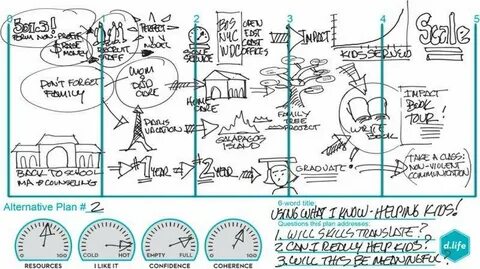 0 1 2 3 4 5
501c3!
FORM NON-PROFIT
& RAISE MONEY
RECRUIT STAFF
PERFECT MODEL
SCALE SERVICE
BOS
NYC
WDC
OPEN EAST COAST OFFICES
IMPACT
KIDS SERVED
Scale
DON'T FORGET FAMILY
MOM & DAD CARE
HOME CARE
FAMILY TREE PROJECT
WRITE BOOK
IMPACT BOOK TOUR!
PARIS VACATION
GALAPAGOS ISLAND
BACK TO SCHOOL
MA COUNSELING
#1 YEAR
#2 YEAR
GRADUATE!
TAKE A CLASS:
NON-VIOLENT COMMUNICATION
Alternative Plan # 2
6-word title
USING WHAT I KNOW - HELPING KIDS!
Questions this plan addresses:
1. WILL SKILLS TRANSLATE?
2. CAN I REALLY HELP KIDS?
3. WILL THIS BE MEANINGFUL?
0 100
RESOURCES
COLD HOT
I LIKE IT
EMPTY FULL
CONFIDENCE
0 100
COHERENCE
d.life